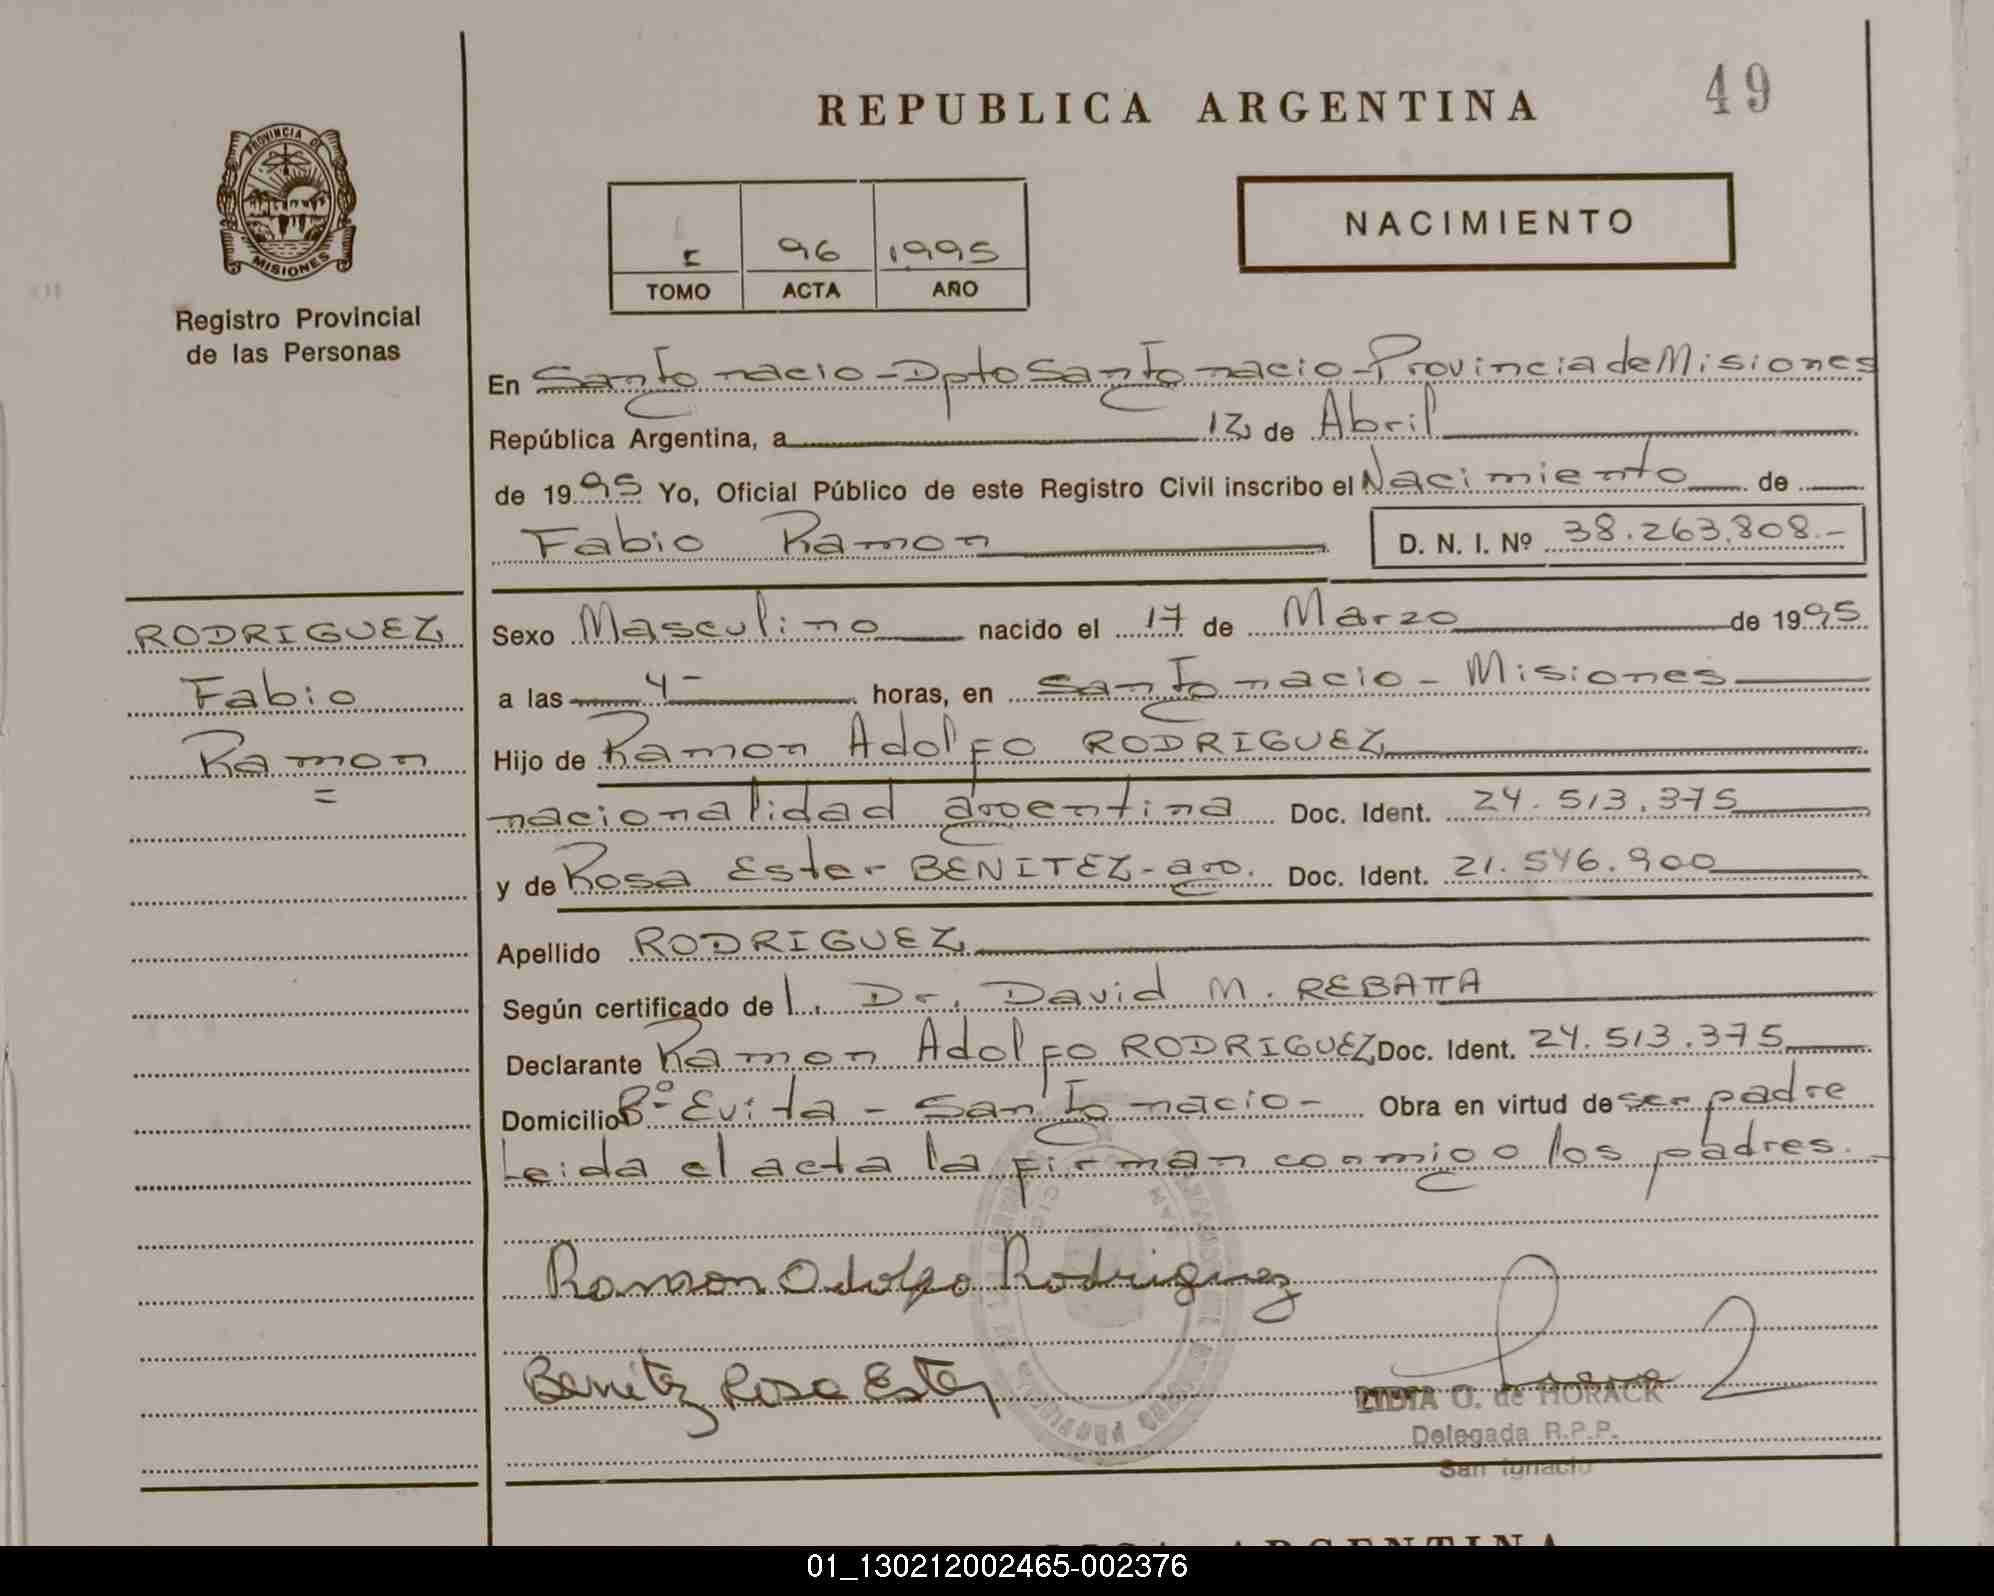 REPUBLICA ARGENTINA
49
PROVINCIA DE
MISIONES
Registro Provincial
de las Personas
I 96 1995
TOMO ACTA AÑO
NACIMIENTO
En San Ignacio - Dpto San Ignacio - Provincia de Misiones
República Argentina, a 12 de Abril
de 1995 Yo, Oficial Público de este Registro Civil inscribo el Nacimiento de
Fabio Ramon D. N. I. Nº 38.263.808.-
RODRIGUEZ
Fabio
Ramon
=
Sexo Masculino nacido el 17 de Marzo de 1995
a las 4- horas, en San Ignacio - Misiones
Hijo de Ramon Adolfo RODRIGUEZ
nacionalidad argentina Doc. Ident. 24.513.375
y de Rosa Ester BENITEZ - arg. Doc. Ident. 21.546.900
Apellido RODRIGUEZ
Según certificado de l. Dr. David M. REBATTA
Declarante Ramon Adolfo RODRIGUEZ Doc. Ident. 24.513.375
Domicilio Bº Evita - San Ignacio - Obra en virtud de ser padre
Leida el acta la firman conmigo los padres.
Ramon Adolfo Rodriguez
Benitez Rosa Ester
LIDIA O. de HORACK
Delegada R.P.P.
San Ignacio
ARGENTINA
01_130212002465-002376